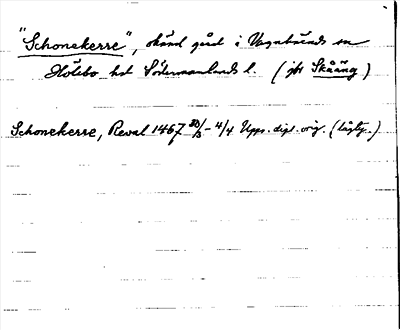 "Schonekerre", okänd gård i Vagnhärads sn
Hölebo hd Södermanlands l. (jfr Skåäng)
Schonekerre, Reval 1467 30/3 - 4/4 Upps. dipl. orig. (lågty.)